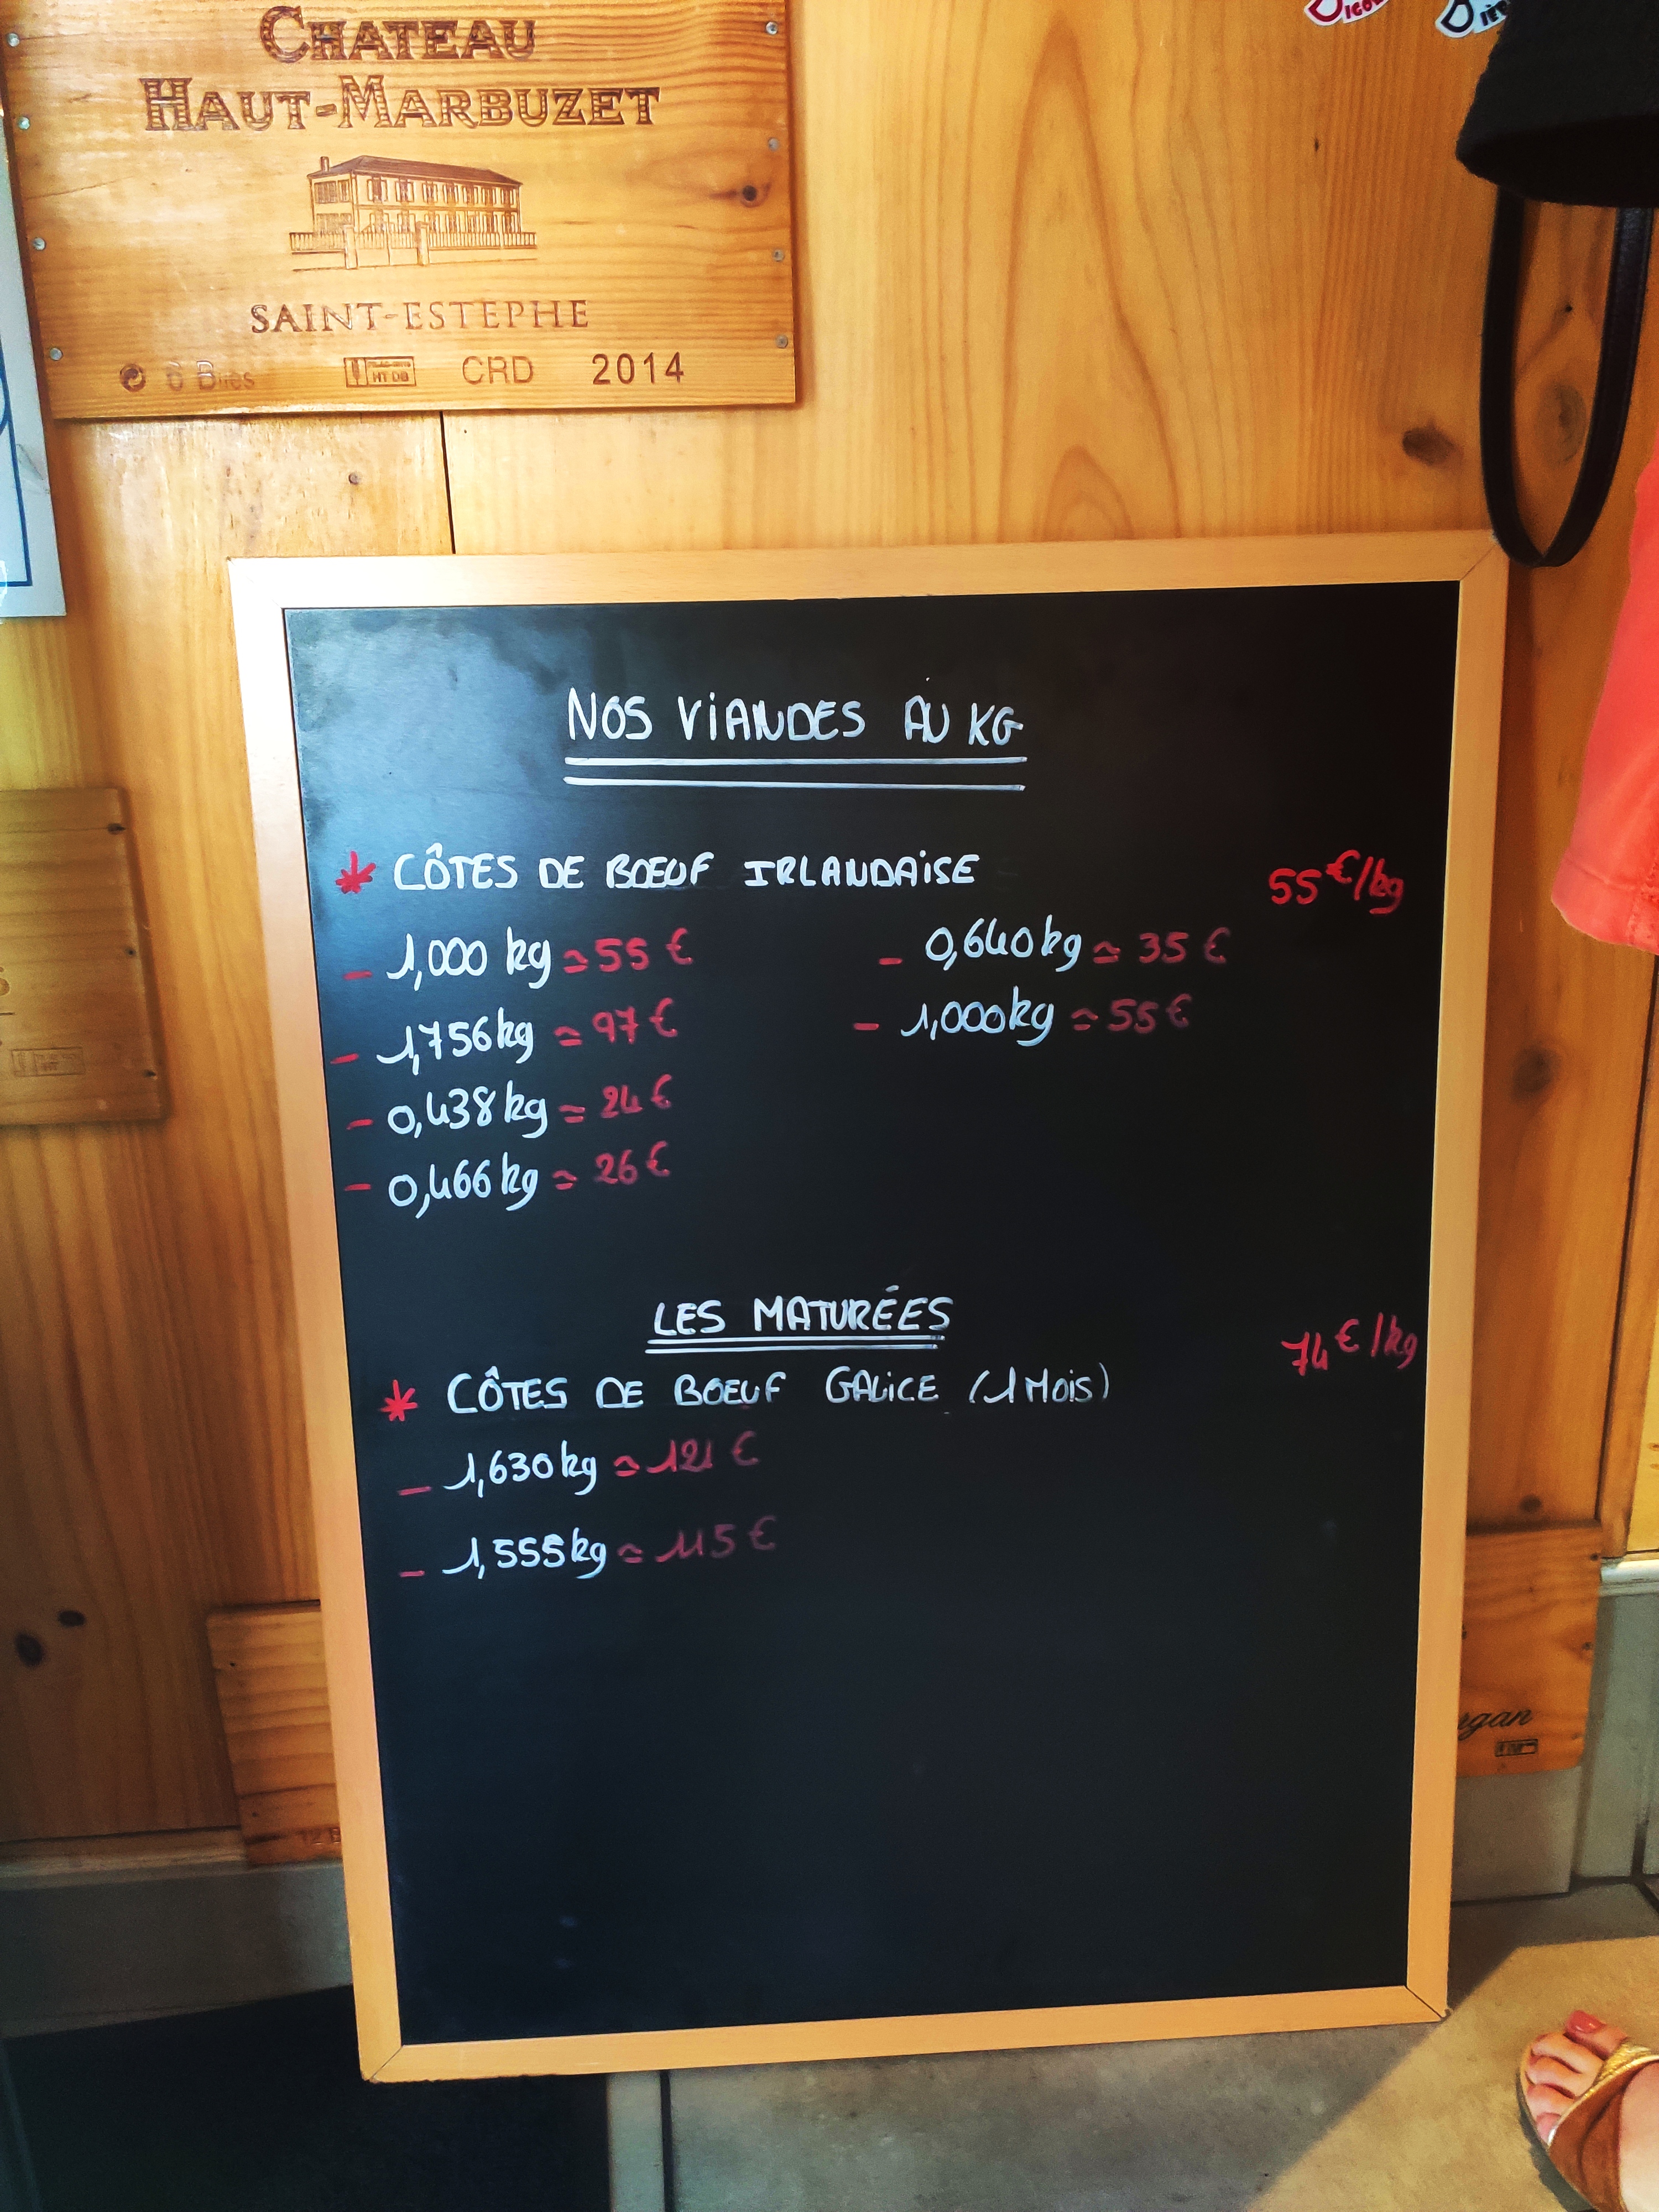 CHATEAU
HAUT-MARBUZET
SAINT-ESTEPHE
6 Blles HT DB CRD 2014
NOS VIANDES AU KG
* CÔTES DE BŒUF IRLANDAISE 55€/kg
- 1,000 kg = 55 € - 0,640kg = 35 €
- 1,756kg = 97€ - 1,000kg = 55€
- 0,438kg = 24€
- 0,466kg = 26€
LES MATURÉES
74€/kg
* CÔTES DE BOEUF GALICE (1 MOIS)
- 1,630kg = 121 €
- 1,555kg = 115 €